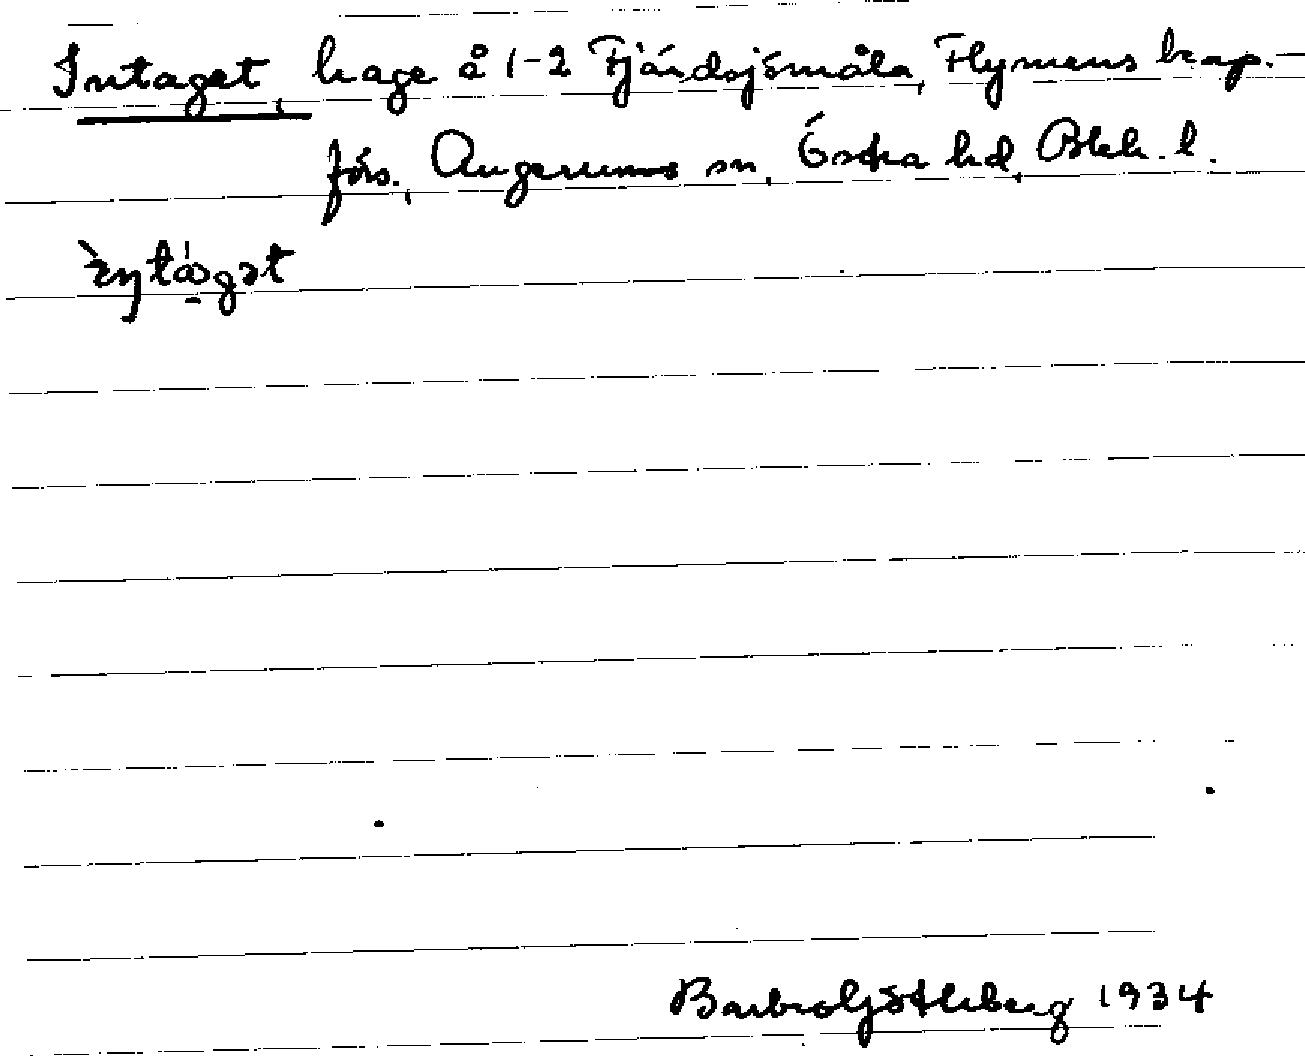 Intaget, hage å 1-2 Fjärdsjömåla, Flymens kap.-
förs., Augerums sn, Östra hd, Blek. l.
Barbro Götleberg 1934